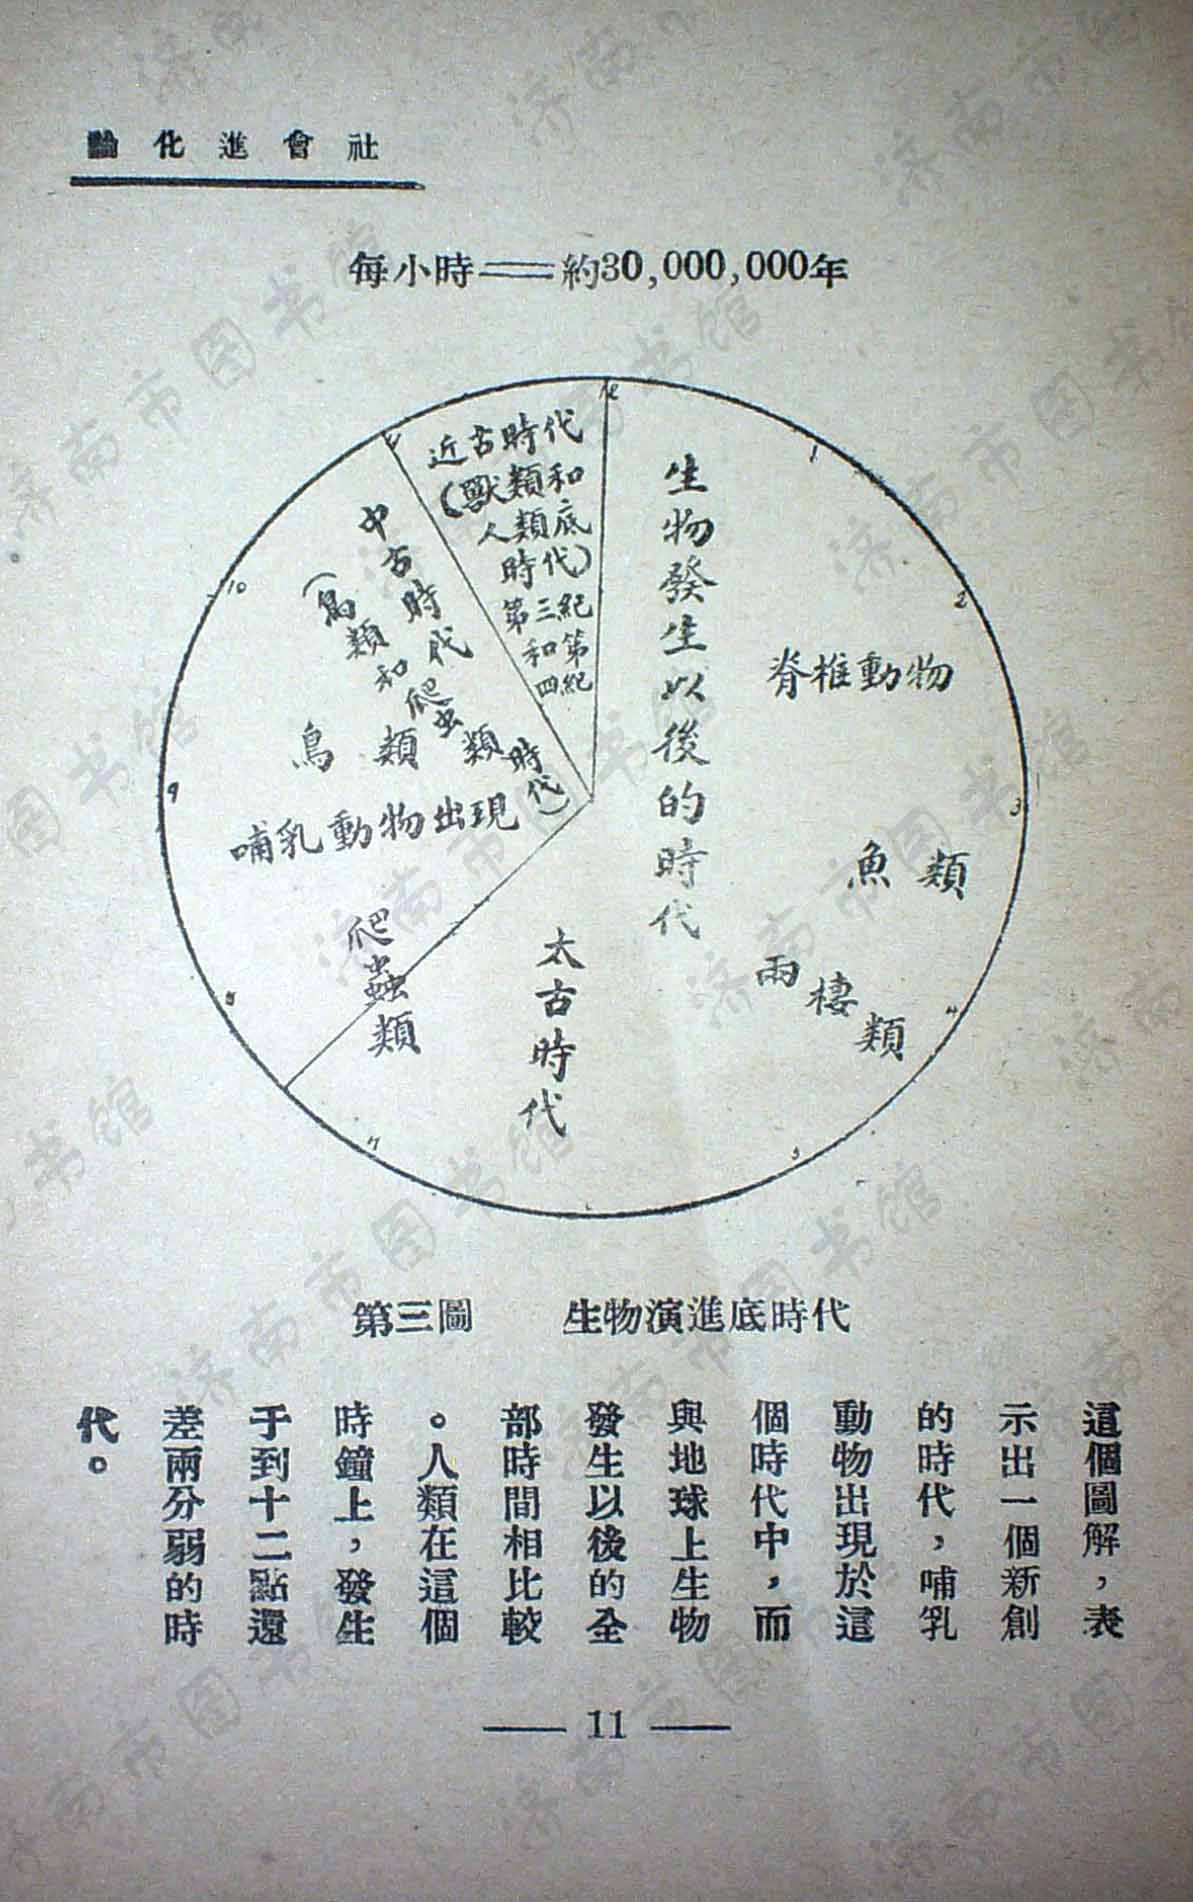 社會進化論
每小時＝約30,000,000年
12
1
2
3
4
5
7
8
9
10
近古時代
(獸類和
人類底
時代)
第三紀
和第
四紀
生物發生以後的時代
脊椎動物
魚類
兩棲類
太古時代
中古時代
(鳥類和爬虫類時代)
鳥類
哺乳動物出現
爬蟲類
第三圖 生物演進底時代
這個圖解，表
示出一個新創
的時代，哺乳
動物出現於這
個時代中，而
與地球上生物
發生以後的全
部時間相比較
。人類在這個
時鐘上，發生
于到十二點還
差兩分弱的時
代。
— 11 —
济南市图书馆